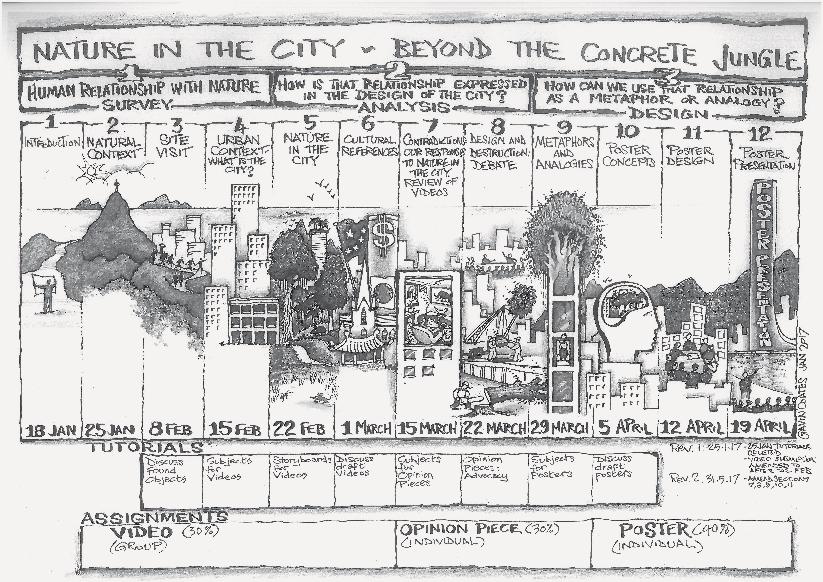 NATURE IN THE CITY ~ BEYOND THE CONCRETE JUNGLE
1
HUMAN RELATIONSHIP WITH NATURE
SURVEY
2
HOW IS THAT RELATIONSHIP EXPRESSED
IN THE DESIGN OF THE CITY?
ANALYSIS
3
HOW CAN WE USE THAT RELATIONSHIP
AS A METAPHOR OR ANALOGY?
DESIGN
1
INTRODUCTION
2
NATURAL
CONTEXT
3
SITE
VISIT
4
URBAN
CONTEXT-
WHAT IS THE
CITY?
5
NATURE
IN THE
CITY
6
CULTURAL
REFERENCES
7
CONTRADICTIONS
OUR RESPONSE
TO NATURE IN
THE CITY
REVIEW OF
VIDEOS
8
DESIGN AND
DESTRUCTION:
DEBATE
9
METAPHORS
AND
ANALOGIES
10
POSTER
CONCEPTS
11
POSTER
DESIGN
12
POSTER
PRESENTATION
$
POSTER PRESENTATION
GAVIN COATES JAN 2017
18 JAN
25 JAN
8 FEB
15 FEB
22 FEB
1 MARCH
15 MARCH
22 MARCH
29 MARCH
5 APRIL
12 APRIL
19 APRIL
TUTORIALS
Discuss
Found
Objects
Subjects
for
Videos
Storyboards
for
Videos
Discuss
draft
Videos
Subjects
for
Opinion
Pieces
Opinion
Pieces:
Advocacy
Subjects
for
Posters
Discuss
draft
posters
Rev. 1: 25.1.17 - 25 JAN TUTORIAL
DELETED
- VIDEO SUBMISSION
AMENDED TO
Rev. 2. 31.5.17 - AMEND SECTIONS
7, 8, 9, 10, 11
ASSIGNMENTS
VIDEO (30%)
(GROUP)
OPINION PIECE (30%)
(INDIVIDUAL)
POSTER (40%)
(INDIVIDUAL)